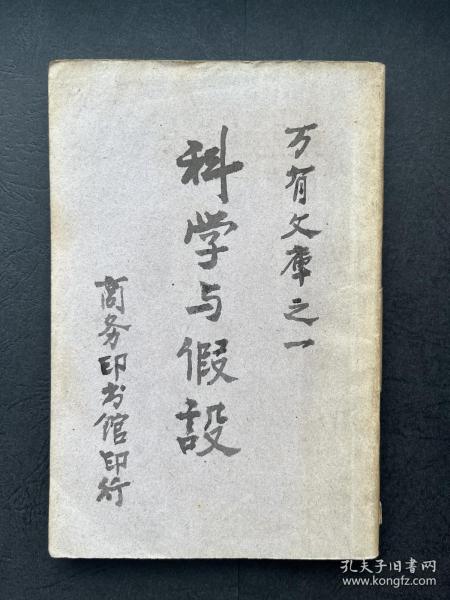 万有文庫之一
科学与假設
商务印书馆印行
孔夫子旧书网
www.kongfz.com